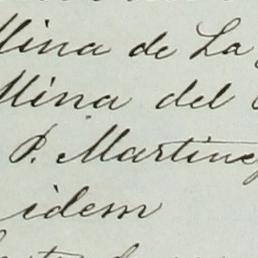 Mina de La
Mina del
P. Martinez
idem